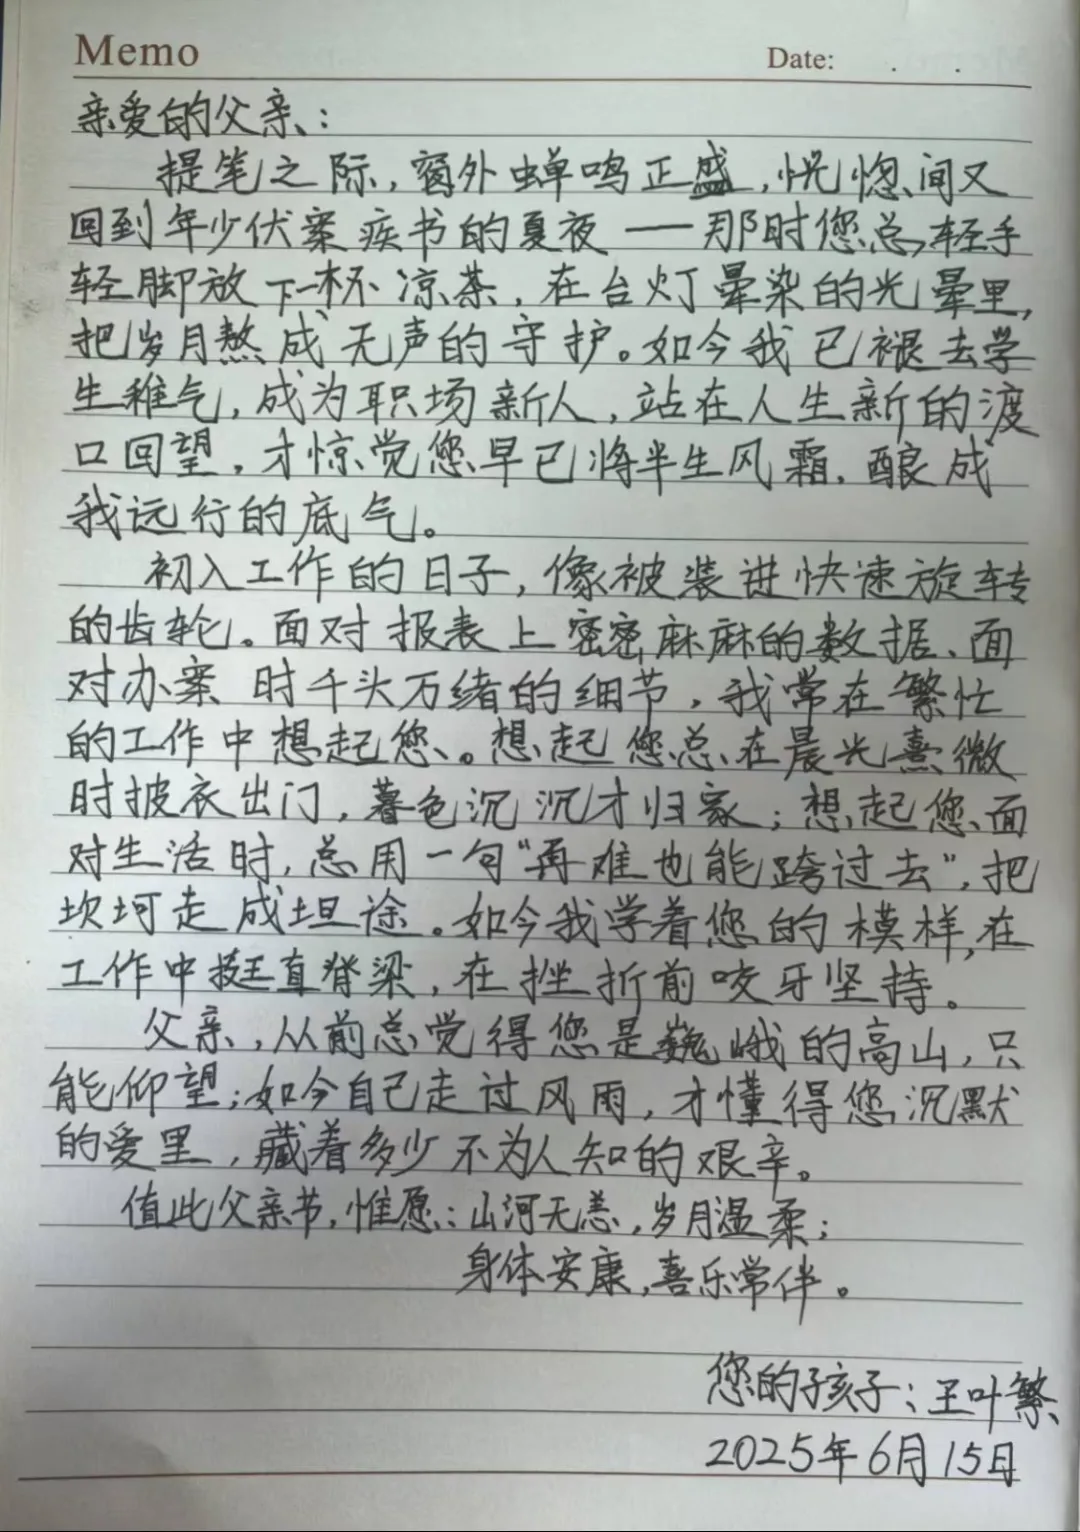 Memo
Date: . .
亲爱的父亲：
提笔之际，窗外蝉鸣正盛，恍惚间又
回到年少伏案疾书的夏夜——那时您总轻手
轻脚放下一杯凉茶，在台灯晕染的光晕里，
把岁月熬成无声的守护。如今我已褪去学
生稚气，成为职场新人，站在人生新的渡
口回望，才惊觉您早已将半生风霜，酿成
我远行的底气。
初入工作的日子，像被装进快速旋转
的齿轮。面对报表上密密麻麻的数据、面
对办案时千头万绪的细节，我常在繁忙
的工作中想起您、。想起您总在晨光熹微
时披衣出门，暮色沉沉才归家；想起您面
对生活时，总用一句“再难也能跨过去”，把
坎坷走成坦途。如今我学着您的模样，在
工作中挺直脊梁，在挫折前咬牙坚持。
父亲，从前总觉得您是巍峨的高山，只
能仰望；如今自己走过风雨，才懂得您沉默
的爱里，藏着多少不为人知的艰辛。
值此父亲节，惟愿：山河无恙，岁月温柔；
身体安康，喜乐常伴。
您的孩子：王叶繁
2025年6月15日